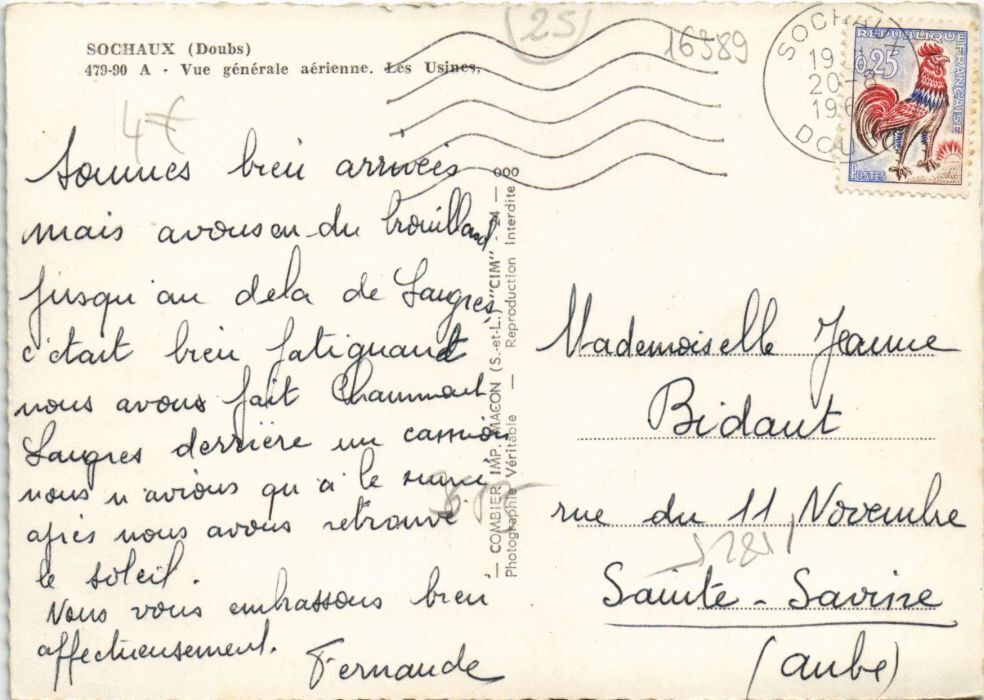 SOCHAUX (Doubs)
479-90 A - Vue générale aérienne. Les Usines.
(25)
16989
4€
Sommes bien arrivées
mais avons eu du brouillard
jusqu'au dela de Langres
c'etait bien fatiguant
nous avons fait Chaumont
Langres derrière un camion
nous n'avions qu'a le suivre
après nous avons retrouvé
le soleil.
Nous vous embrassons bien
affectueusement.
Fernande
— COMBIER IMP. MACON (S.-et-L.) "CIM" — 24 — 000
Photographie Véritable — Reproduction Interdite
SOCHAUX
19
20-8
196
DOUBS
REPUBLIQUE FRANÇAISE
0,25
POSTES
Mademoiselle Jeanne
Bidaut
rue du 11 Novembre
Sainte-Savine
(aube)